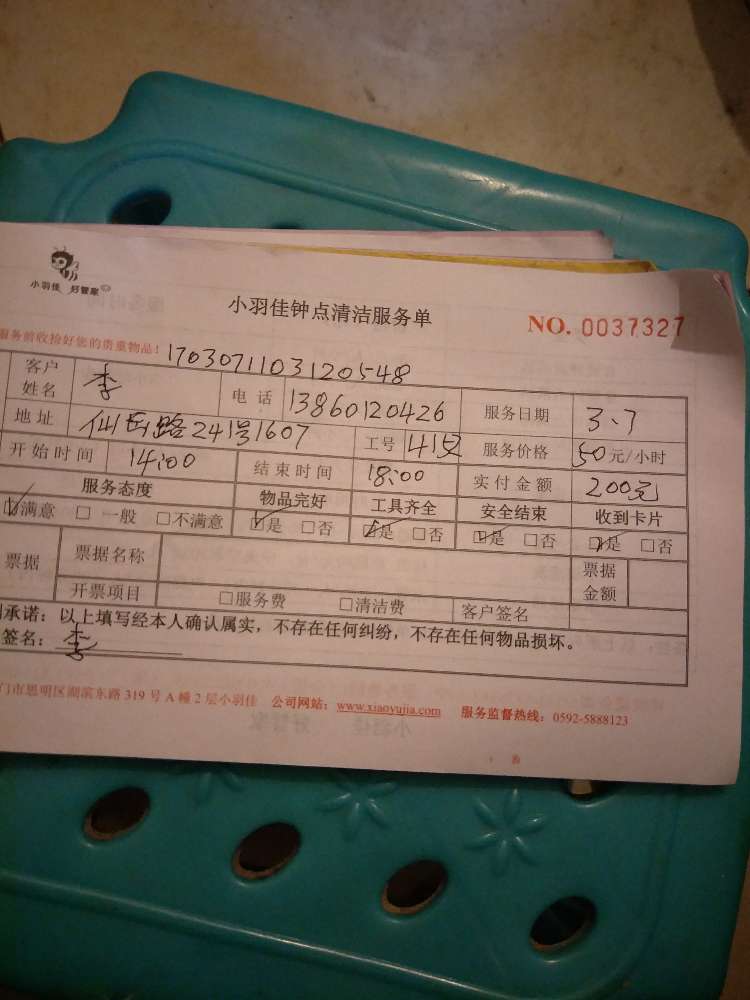 小羽佳 好管家
小羽佳钟点清洁服务单
NO. 0037327
服务前收捡好您的贵重物品! 1703071103120548
客户姓名 李 电话 13860120426 服务日期 3.7
地址 仙岳路241号1607 工号 服务价格 50元/小时
开始时间 14:00 结束时间 18:00 实付金额 200元
服务态度 物品完好 工具齐全 安全结束 收到卡片
☑满意 □一般 □不满意 ☑是 □否 ☑是 □否 ☑是 □否 ☑是 □否
票据 票据名称 票据金额
开票项目 □服务费 □清洁费 客户签名
承诺：以上填写经本人确认属实，不存在任何纠纷，不存在任何物品损坏。
签名：李
门市思明区湖滨东路319号A幢2层小羽佳 公司网站：www.xiaoyujia.com 服务监督热线：0592-5888123